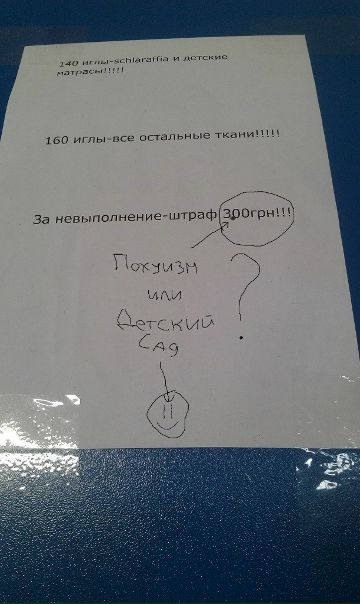 140 иглы-schlaraffia и детские
матрасы!!!!!
160 иглы-все остальные ткани!!!!!
За невыполнение-штраф 300грн!!!
Похуизм
или
Детский
Сад
?